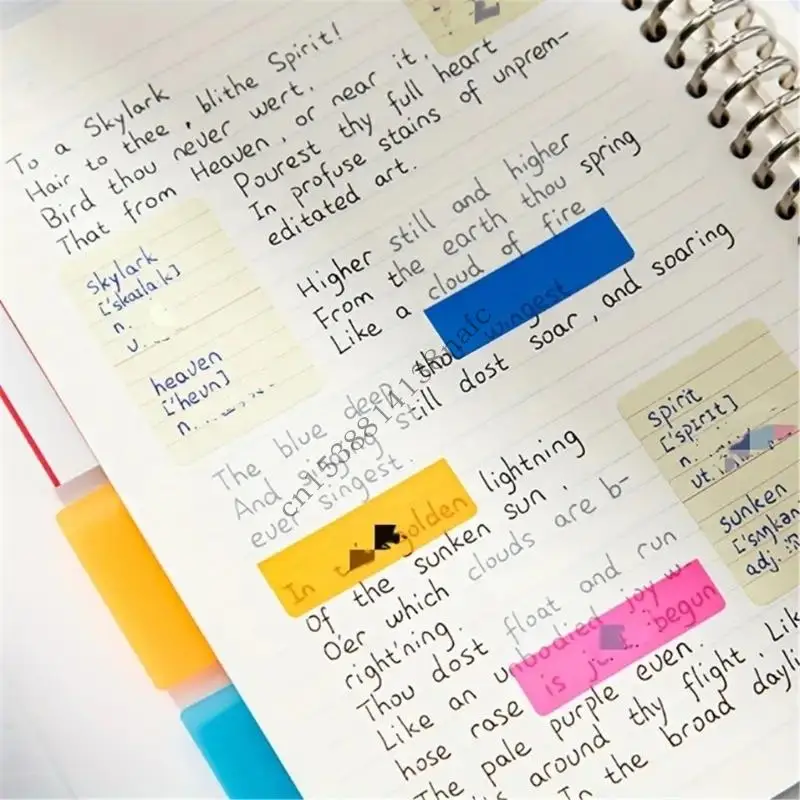 To a Skylark
Hair to thee, blithe Spirit!
Bird thou never wert.
That from Heaven, or near it.
Pourest thy full heart
In profuse stains of unprem-
editated art.
skylark
['skaɪla k]
n.
v.
heaven
['hevn]
n.
Higher still and higher
From the earth thou spring
Like a cloud of fire
The blue deep thou wingest
And singing still dost soar, and soaring
ever singest.
In golden lightning
Of the sunken sun.
O'er which clouds are b-
right'ning.
Thou dost float and run
Like an unbodied joy w
hose rase is begun
The pale purple even.
around thy flight. Lik
In the broad dayli
spirit
['spɪrɪt]
n.
vt.
sunken
['sʌŋkən
adj.